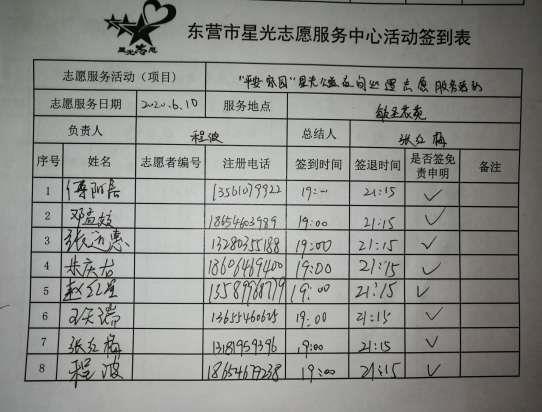 星光志愿
东营市星光志愿服务中心活动签到表
志愿服务活动（项目） "平安家园"星光公益夜间巡逻志愿服务活动
志愿服务日期 2020.6.10 服务地点
负责人 程波 总结人 张红梅
序号 姓名 志愿者编号 注册电话 签到时间 签退时间 是否签免责申明 备注
1 13561079922 19:00 21:15 ✓
2 邓孟姣 18654603989 19:00 21:15 ✓
3 13280355188 19:00 21:15 ✓
4 朱庆友 18606469400 19:00 21:15 ✓
5 赵红星 13589968779 19:00 21:15 ✓
6 13655460625 19:00 21:15 ✓
7 张红梅 13181959396 19:00 21:15 ✓
8 程波 18654679238 19:00 21:15 ✓